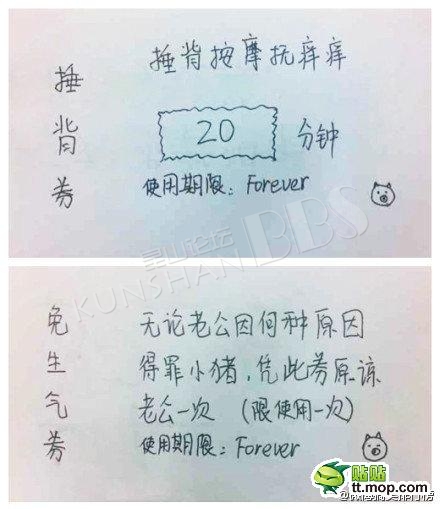 捶背券
捶背按摩抚痒痒
20 分钟
使用期限：Forever
昆山论坛
KUNSHAN BBS
免生气券
无论老公因何种原因
得罪小猪，凭此券原谅
老公一次（限使用一次）
使用期限：Forever
贴贴
tt.mop.com